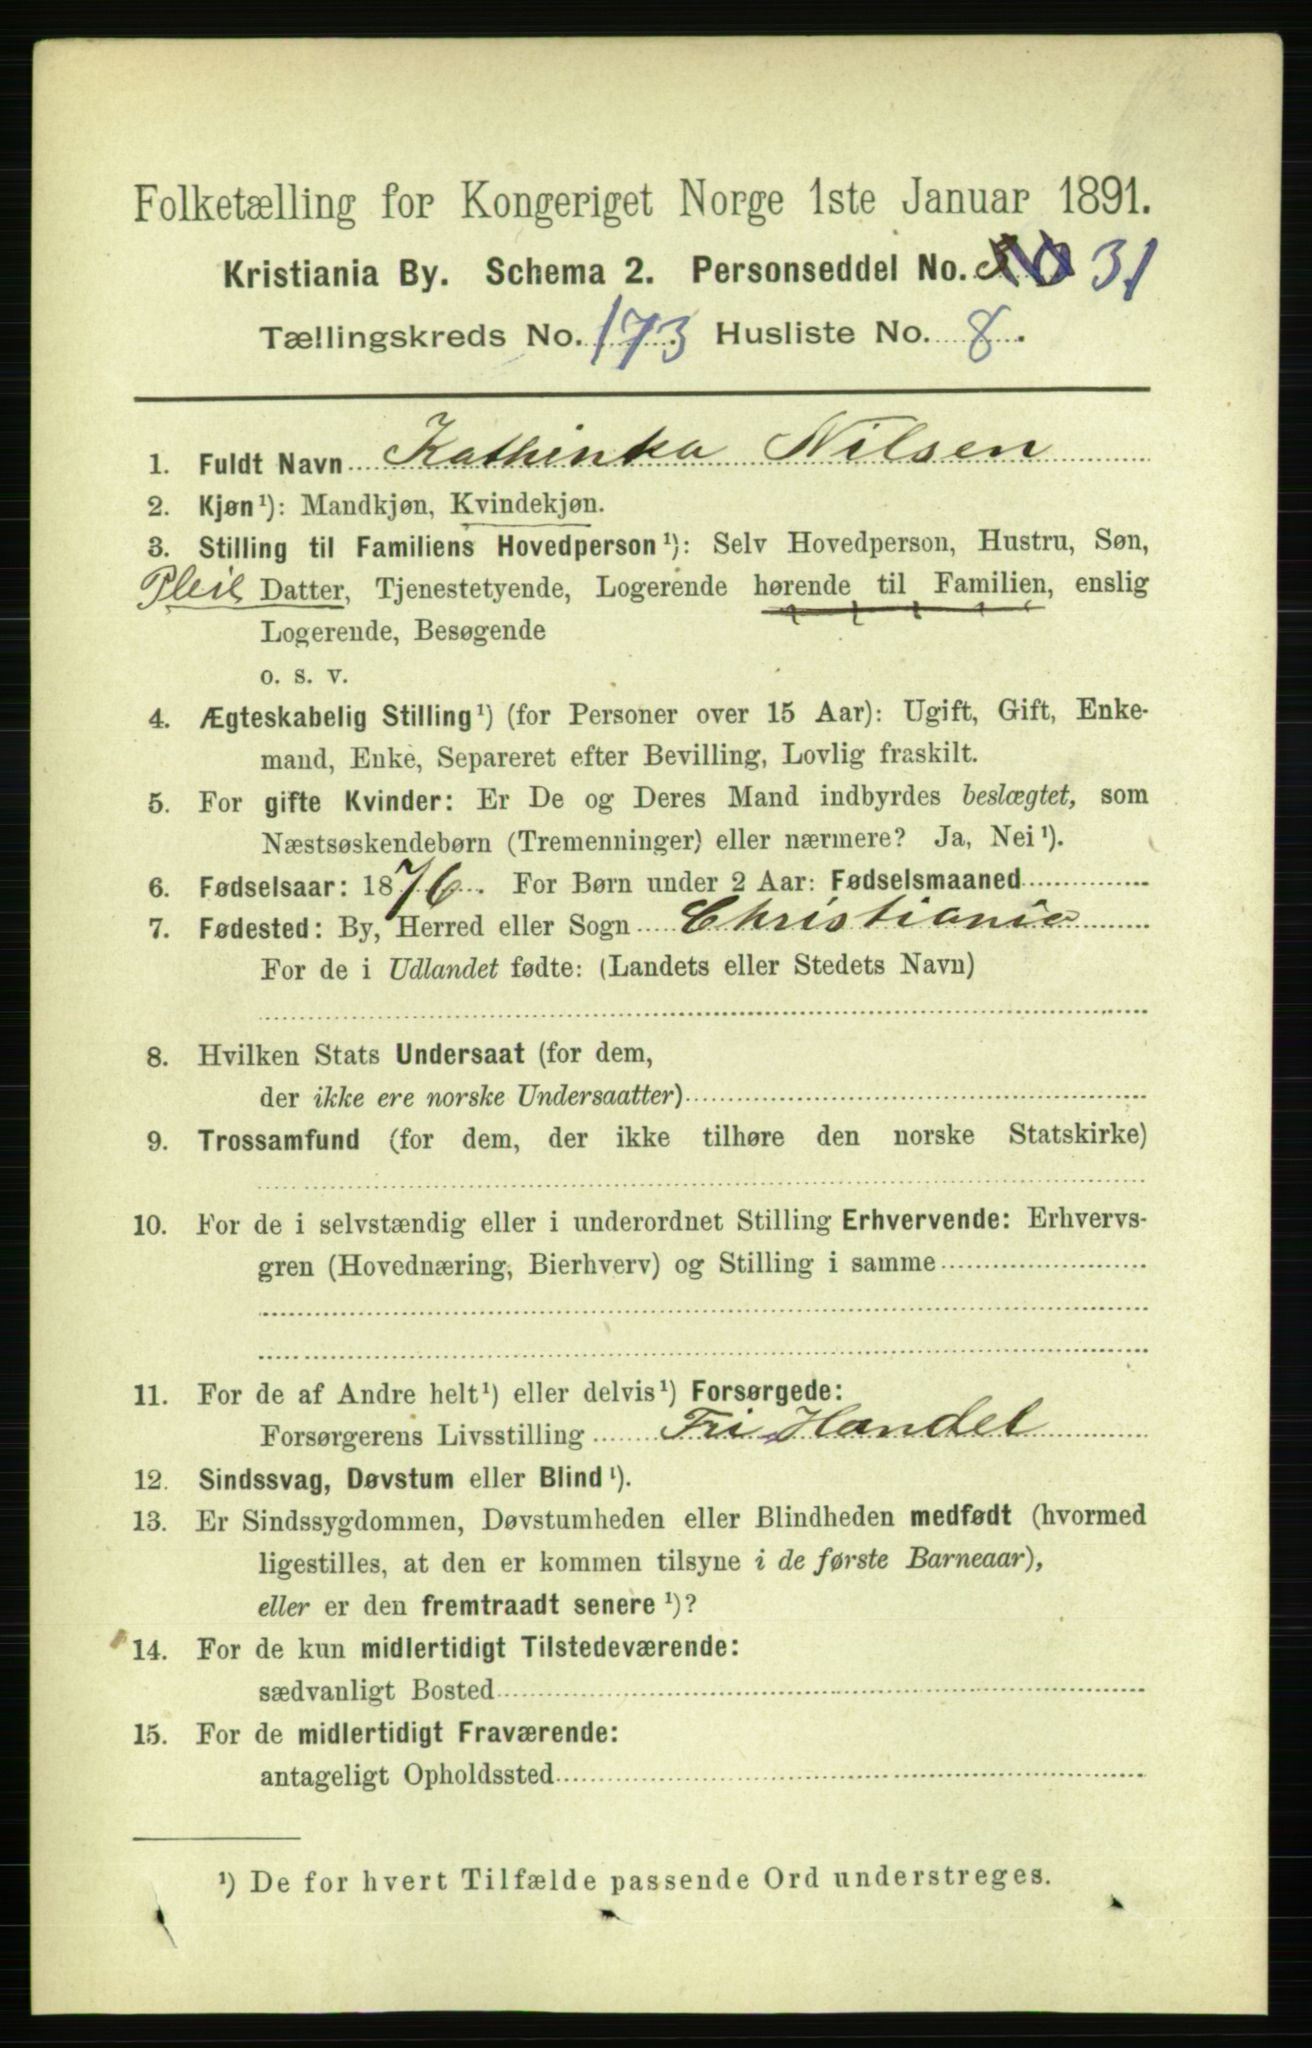 Folketælling for Kongeriget Norge 1ste Januar 1891.
Kristiania By. Schema 2. Personseddel No. 31
Tællingskreds No. 173 Husliste No. 8.
1. Fuldt Navn Kathinka Nilsen
2. Kjøn¹): Mandkjøn, Kvindekjøn.
3. Stilling til Familiens Hovedperson¹): Selv Hovedperson, Hustru, Søn,
Pleie Datter, Tjenestetyende, Logerende hørende til Familien, enslig
Logerende, Besøgende
o. s. v.
4. Ægteskabelig Stilling¹) (for Personer over 15 Aar): Ugift, Gift, Enke-
mand, Enke, Separeret efter Bevilling, Lovlig fraskilt.
5. For gifte Kvinder: Er De og Deres Mand indbyrdes beslægtet, som
Næstsøskendebørn (Tremenninger) eller nærmere? Ja, Nei¹).
6. Fødselsaar: 1876. For Børn under 2 Aar: Fødselsmaaned
7. Fødested: By, Herred eller Sogn Christiania
For de i Udlandet fødte: (Landets eller Stedets Navn)
8. Hvilken Stats Undersaat (for dem,
der ikke ere norske Undersaatter)
9. Trossamfund (for dem, der ikke tilhøre den norske Statskirke)
10. For de i selvstændig eller i underordnet Stilling Erhvervende: Erhvervs-
gren (Hovednæring, Bierhverv) og Stilling i samme
11. For de af Andre helt¹) eller delvis¹) Forsørgede:
Forsørgerens Livsstilling Fri Handel
12. Sindssvag, Døvstum eller Blind¹).
13. Er Sindssygdommen, Døvstumheden eller Blindheden medfødt (hvormed
ligestilles, at den er kommen tilsyne i de første Barneaar),
eller er den fremtraadt senere¹)?
14. For de kun midlertidigt Tilstedeværende:
sædvanligt Bosted
15. For de midlertidigt Fraværende:
antageligt Opholdssted
¹) De for hvert Tilfælde passende Ord understreges.